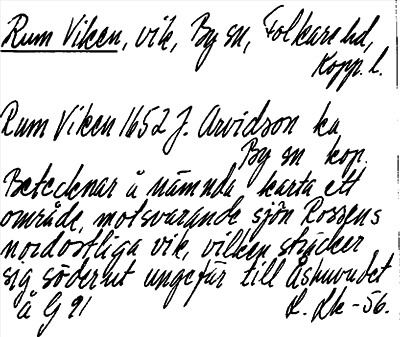 Rum Viken, vik, By sn, Folkare hd,
Kopp. l.
Rum Viken 1652 J. Arvidson ka
By sn kop.
Betecknar å nämnda karta ett
område, motsvarande sjön Rossens
nordostliga vik, vilken sträcker
sig söderut ungefär till Åshuvudet
å G 91 L. Lk -56.